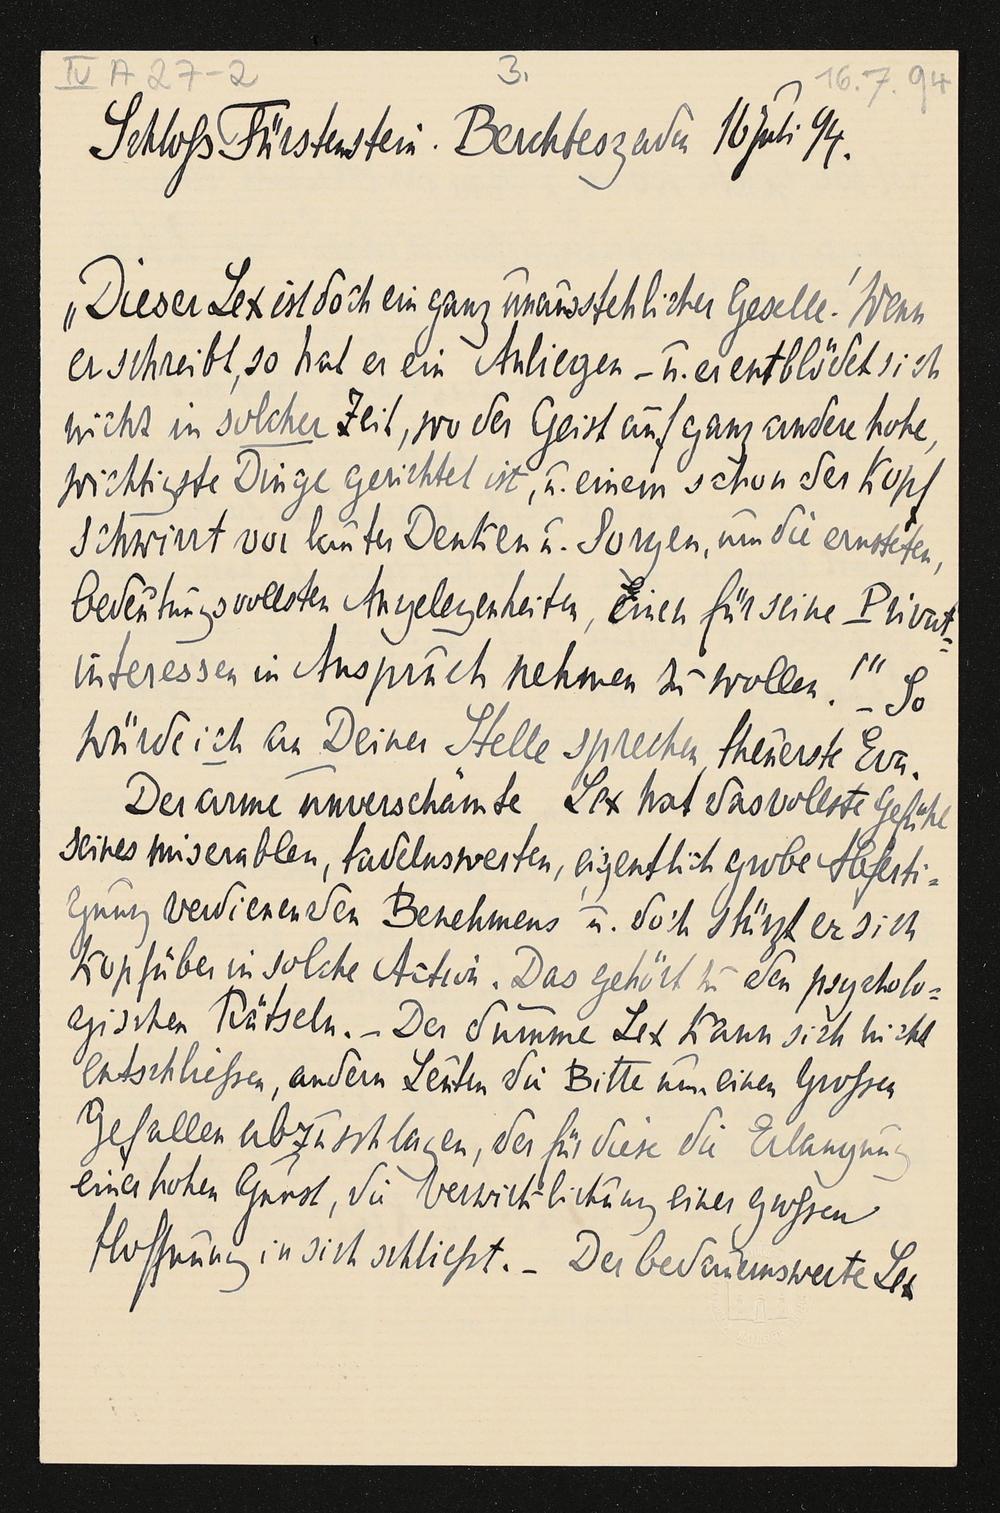 IV A 27-2 3. 16.7.94
Schloß Fürstenstein. Berchtesgaden 16 Juli 94.
„Dieser Lex ist doch ein ganz unausstehlicher Geselle! Wenn
er schreibt, so hat er ein Anliegen – u. er entblödet sich
nicht in solcher Zeit, wo der Geist auf ganz andere hohe,
wichtigste Dinge gerichtet ist, u. einem schon der Kopf
schwirrt vor lauter Denken u. Sorgen, um die ernsteten,
bedeutungsvollsten Angelegenheiten, Einen für seine Privat-
interessen in Anspruch nehmen zu wollen.!" – So
würde ich an Deiner Stelle sprechen, theuerste Eva.
Der arme unverschämte Lex hat das vollste Gefühl
seines miserablen, tadelnswerten, eigentlich grobe Abferti-
gung verdienenden Benehmens u. doch stürzt er sich
kopfüber in solche Action. Das gehört zu den psycholo-
gischen Rätseln. – Der dumme Lex kann sich nicht
entschließen, andern Leuten die Bitte um einen großen
Gefallen abzuschlagen, der für diese die Erlangung
einer hohen Gunst, die Verwirklichung einer großen
Hoffnung in sich schließt. – Der bedauernswerte Lex